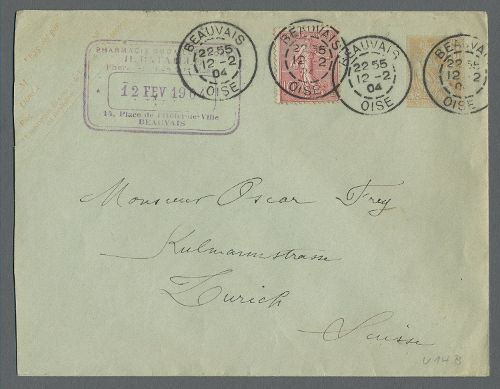 PHARMACIE
12 FEV 1904
14, Place de l'Hôtel-de-Ville
BEAUVAIS
BEAUVAIS
22 55
12 -2
04
OISE
BEAUVAIS
55
12 -2
04
OISE
BEAUVAIS
22 55
12 -2
04
OISE
BEAUVAIS
22 55
12 2
OISE
Monsieur Oscar Frey
Kulmannstrasse
Zurich
Suisse
U 14 B